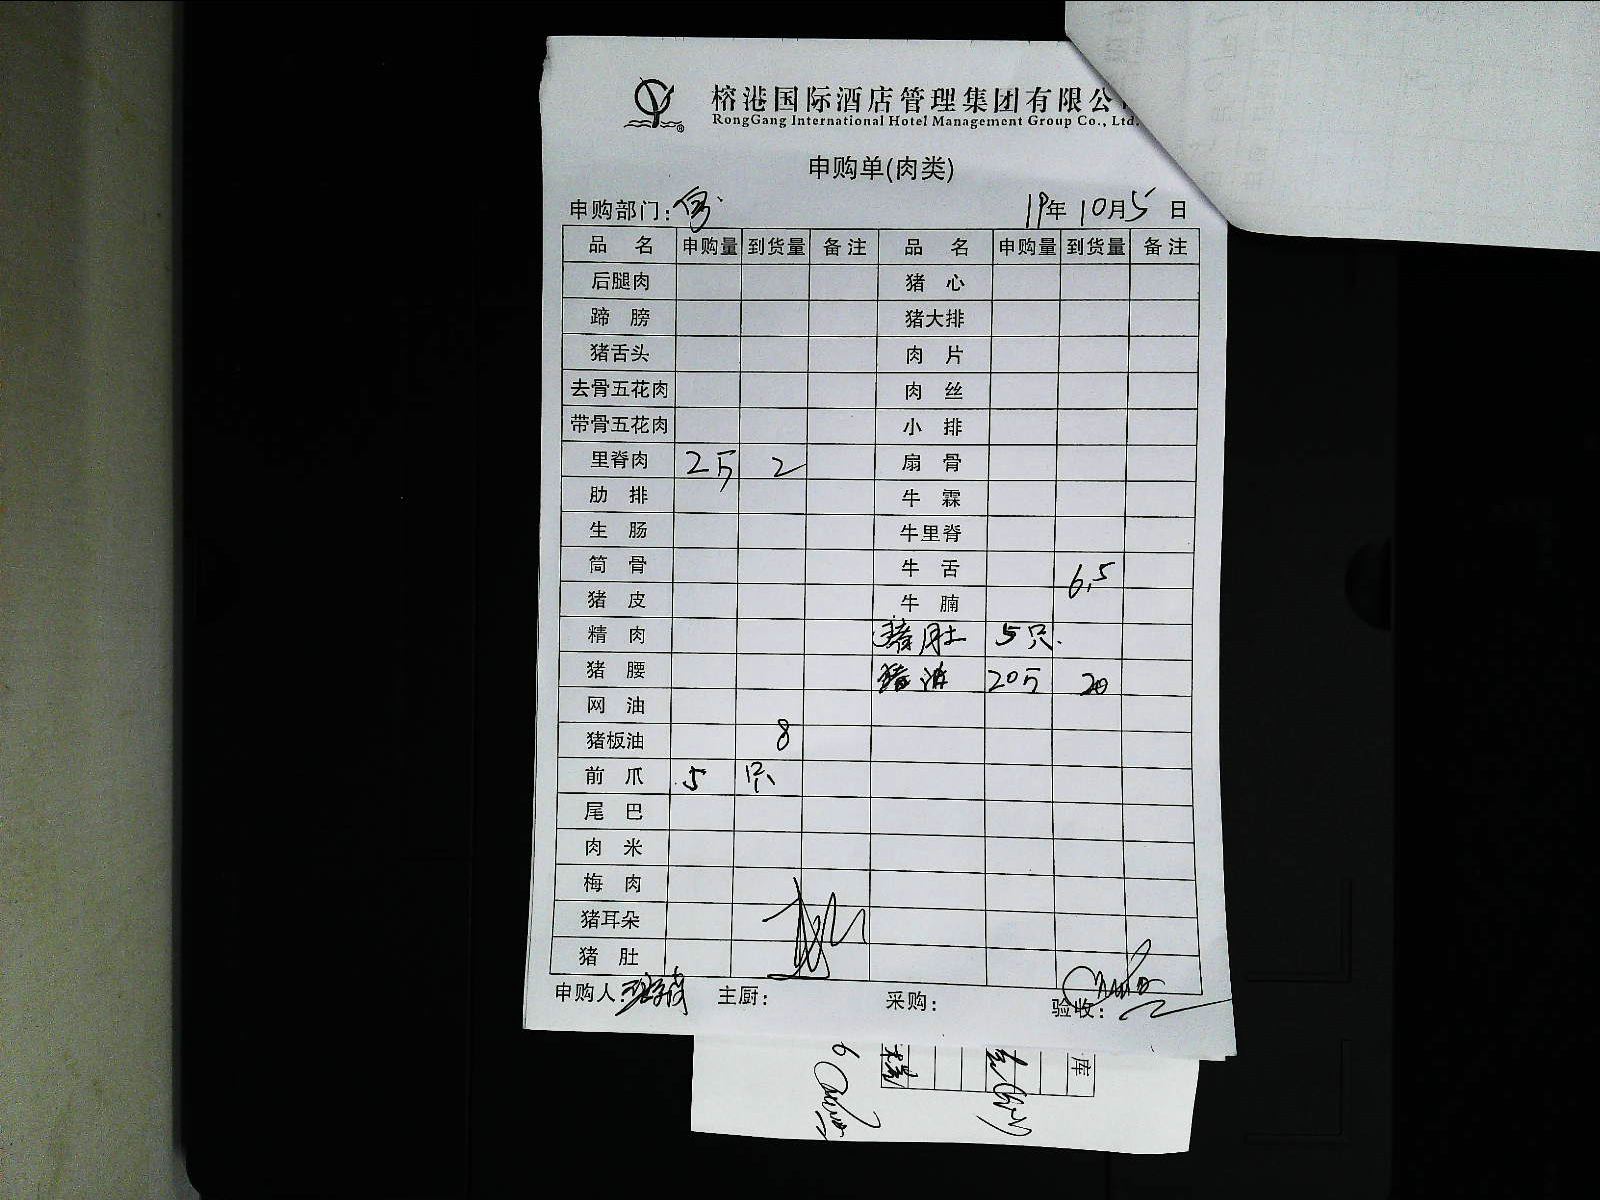 榕港国际酒店管理集团有限公
RongGang International Hotel Management Group Co., Ltd.
申购单(肉类)
申购部门: 19年 10月 5 日
品 名 申购量 到货量 备注 品 名 申购量 到货量 备注
后腿肉 猪 心
蹄 膀 猪大排
猪舌头 肉 片
去骨五花肉 肉 丝
带骨五花肉 小 排
里脊肉 2斤 2 扇 骨
肋 排 牛 霖
生 肠 牛里脊
筒 骨 牛 舌 6.5
猪 皮 牛 腩
精 肉 猪肚 5只
猪 腰 猪油 20斤 20
网 油
猪板油 8
前 爪 5 只
尾 巴
肉 米
梅 肉
猪耳朵
猪 肚
申购人: 主厨: 采购: 验收:
库
6